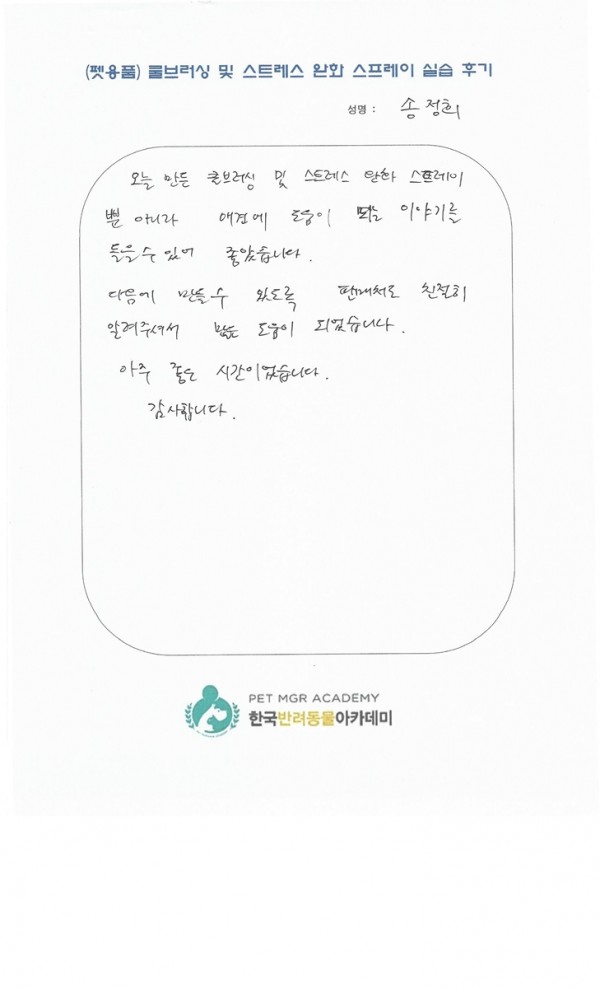 (펫용품) 룰브러싱 및 스트레스 완화 스프레이 실습 후기
성명 : 송정희
오늘 만든 쿨브러싱 및 스트레스 완화 스프레이
뿐 아니라 애견에 도움이 되는 이야기를
들을수 있어 좋았습니다.
다음에 만들수 있도록 판매처도 친절히
알려주셔서 많은 도움이 되었습니다.
아주 좋은 시간이었습니다.
감사합니다.
PET MGR ACADEMY
한국반려동물아카데미